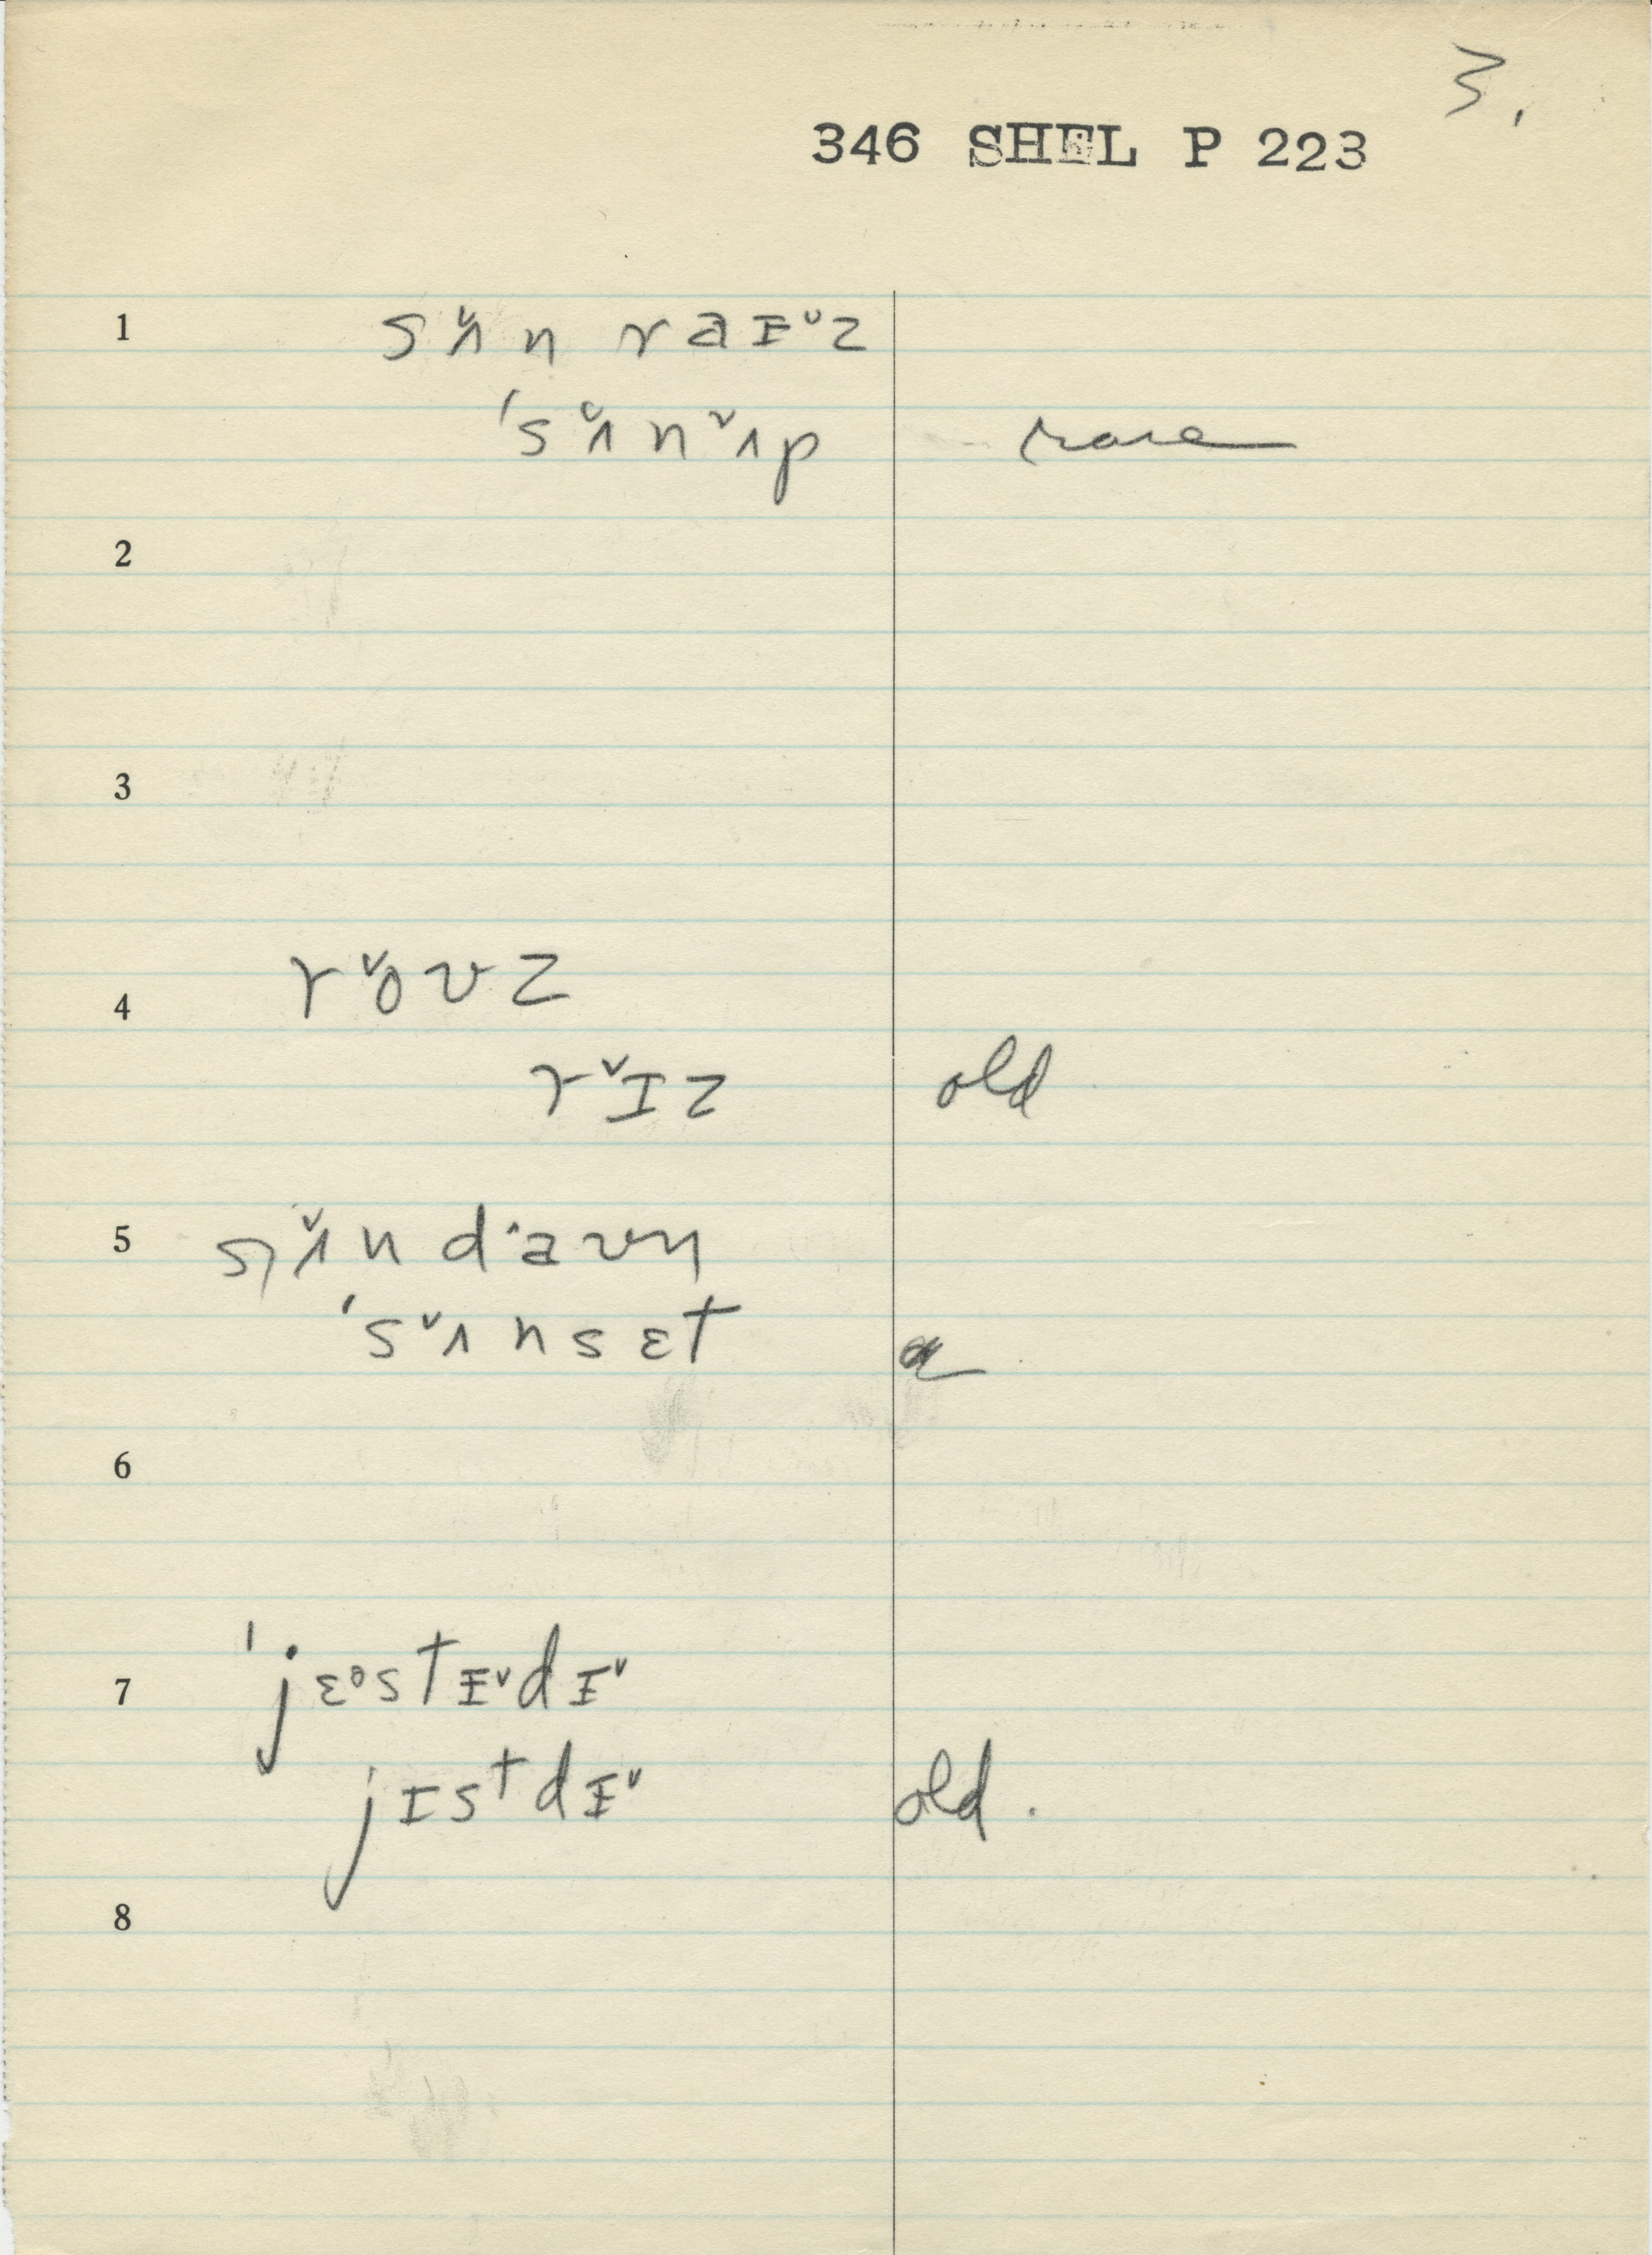 3.
346 SHEL P 223
1 sʌ̌n raɪᵛz
'sʌ̌nᵛʌp rare
2
3
4 rᵛoʊz
rᵛɪz old
5 sʌ̌n d˄aʊn
'sᵛʌnsɛt
6
7 'jɛᵊstɪᵛdɪᵛ
jɪstdɪᵛ old.
8